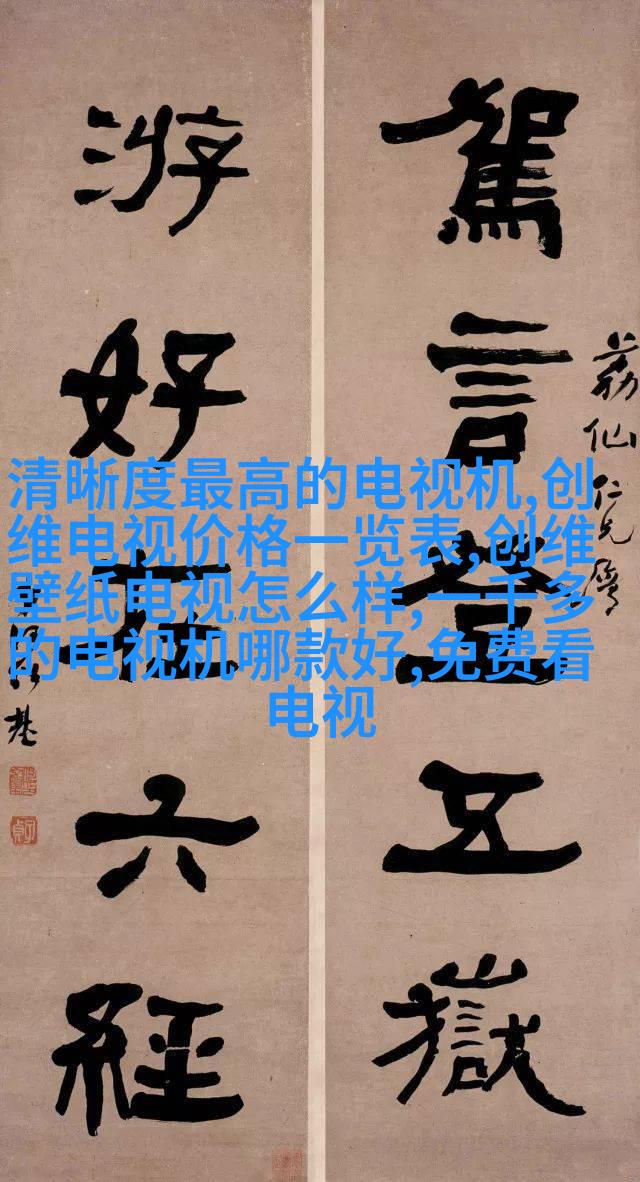 駕言登五嶽
荔仙仁兄属
游好在六經
清晰度最高的电视机,创
维电视价格一览表,创维
壁纸电视怎么样,一千多
的电视机哪款好,免费看
电视